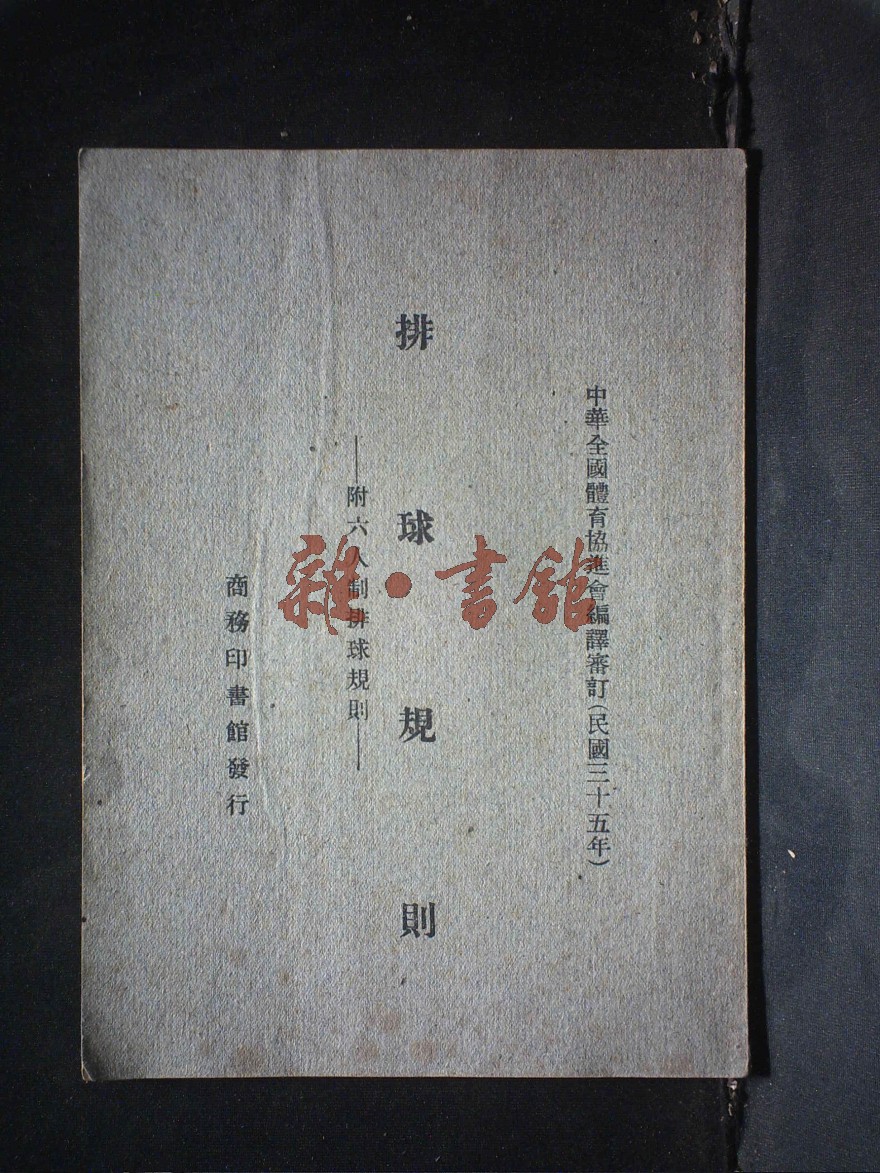 中華全國體育協進會編譯審訂(民國三十五年)
排球規則
——附六人制排球規則——
商務印書館發行
雜·書館